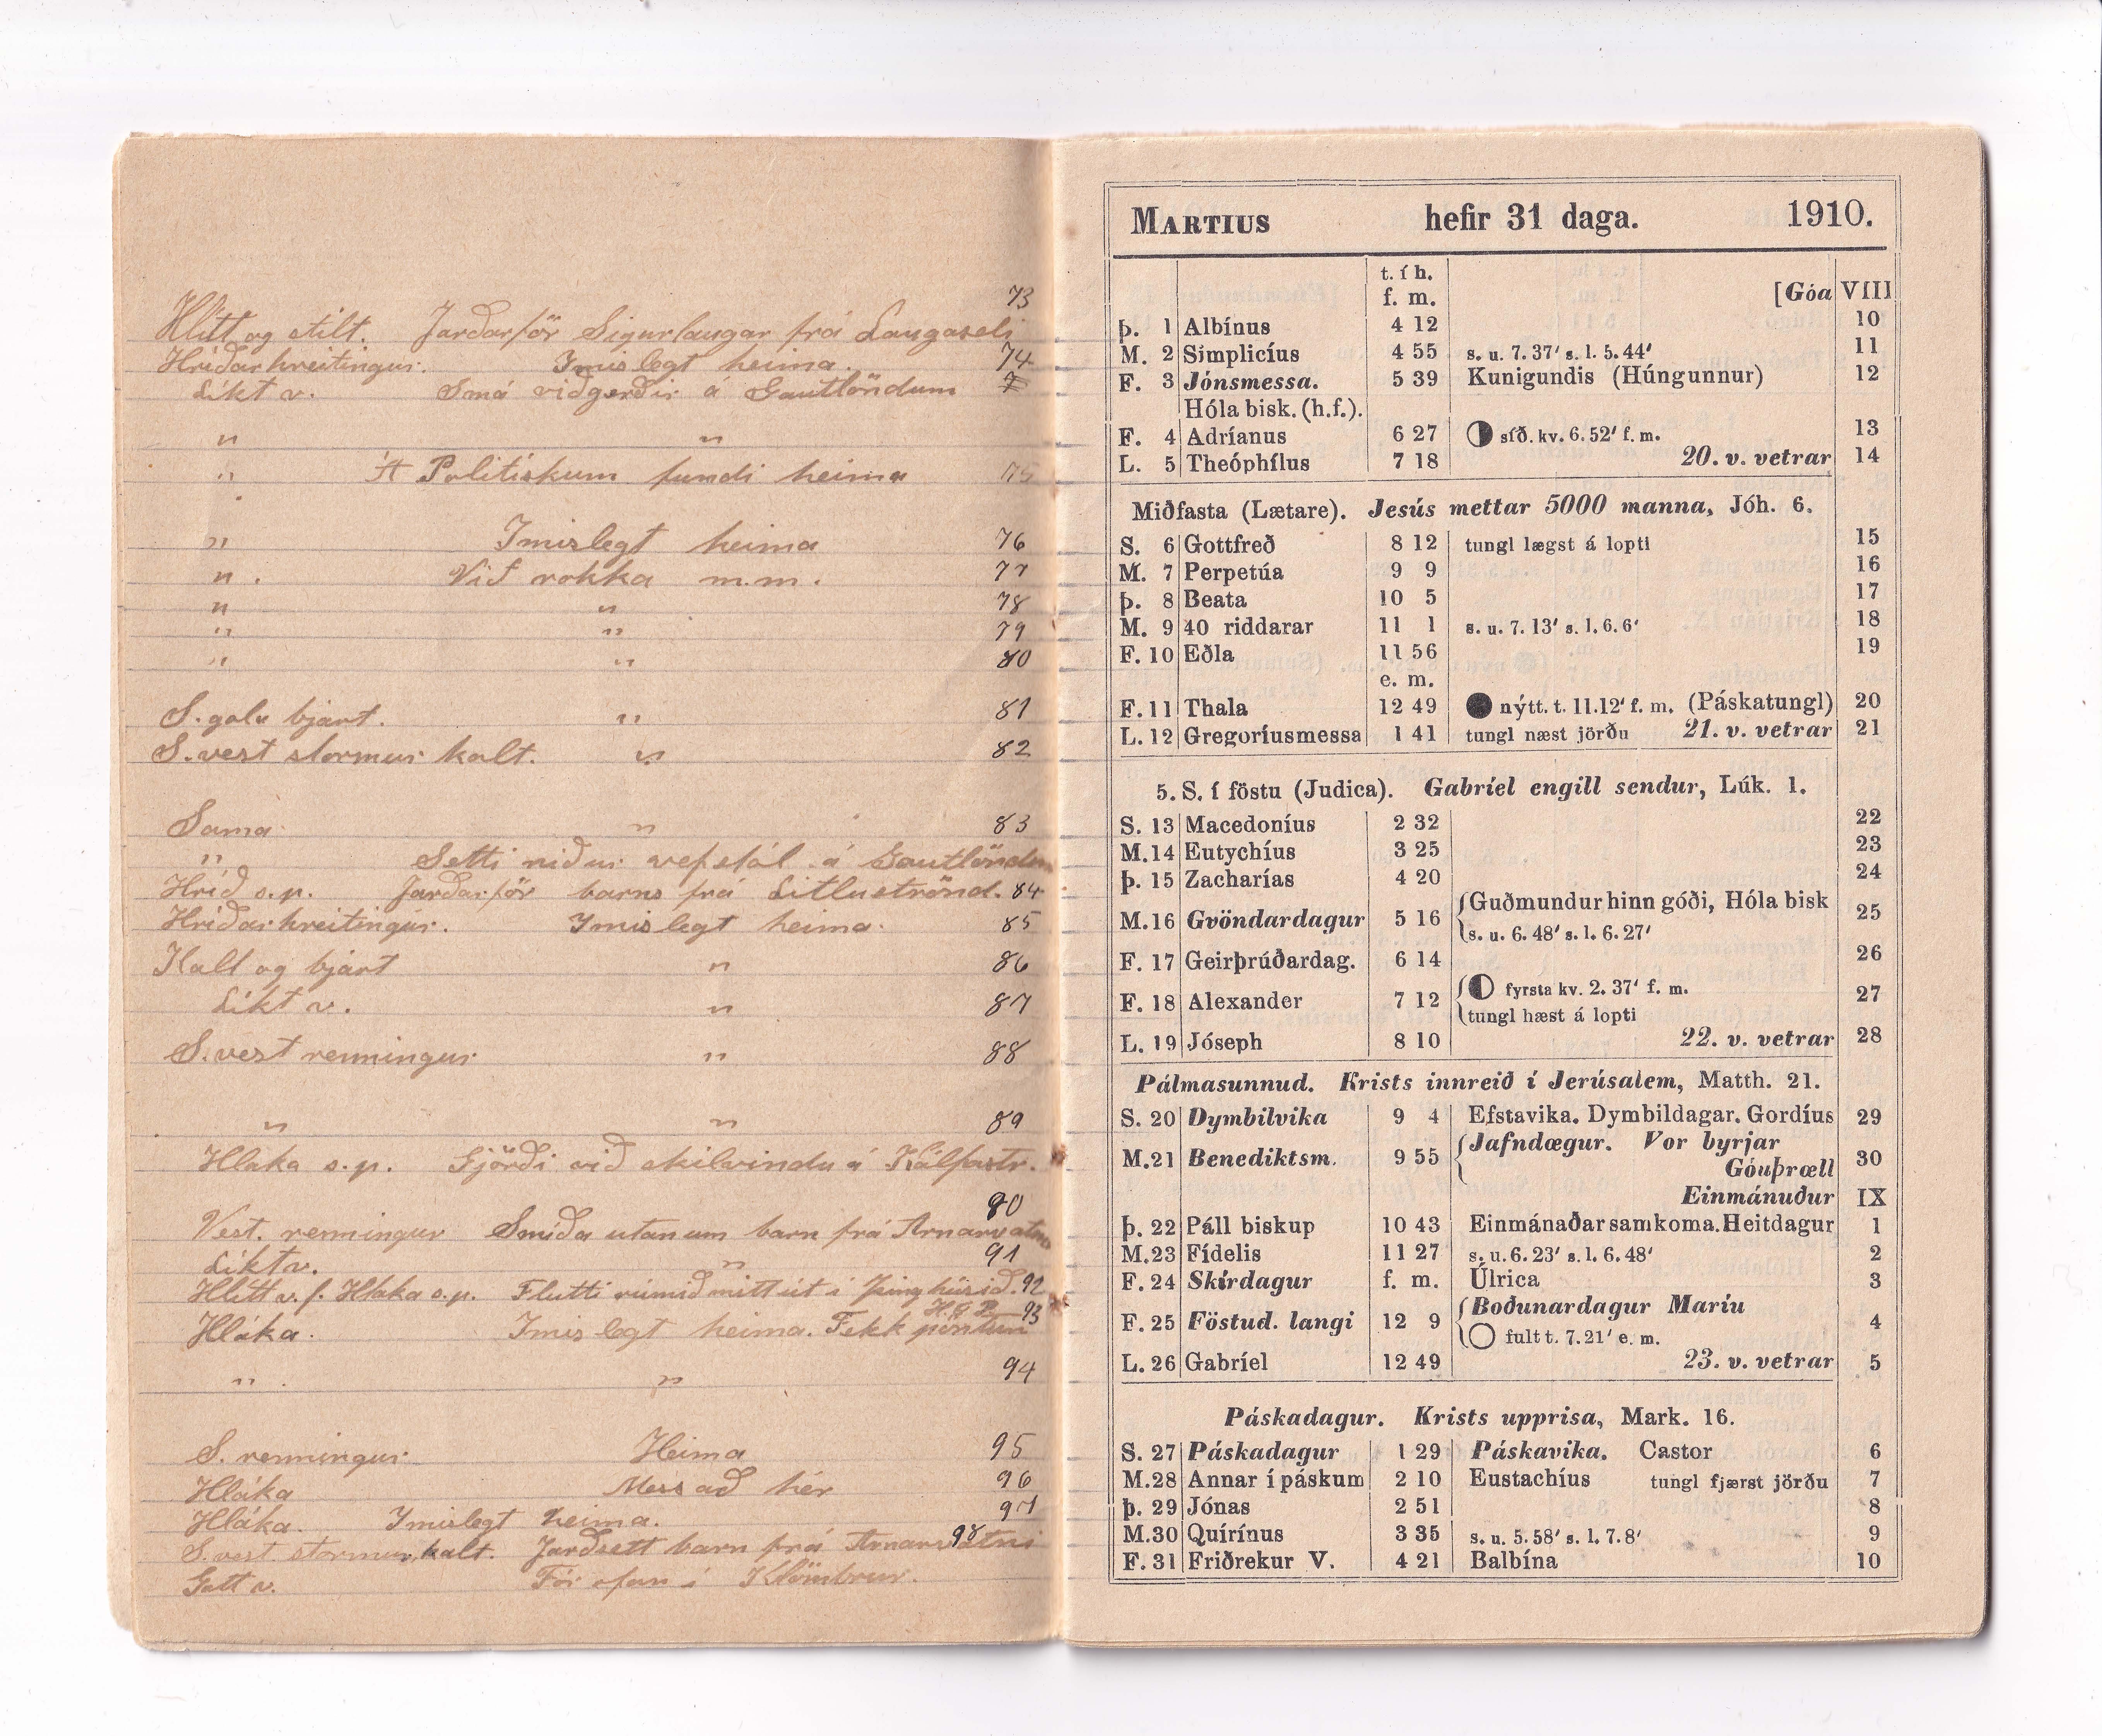 73
Hlítt og stilt. Jarðarför Sigurlaugar frá Laugaseli
Hríðarhreitingur. Imislegt heima. 74
Líkt v. Smá viðgerðir á Gautlöndum
" "
" Á Politiskum fundi heima 75
" Imislegt heima 76
" . Við rokka m.m. 77
" " 78
" " 79
" " 80
S. gola bjart. " 81
S. vest stormur kalt. " 82
Sama " 83
" Setti niður vefstól á Gautlöndum
Hríð s.p. Jarðarför barns frá Litluströnd. 84
Hríðarhreitingur. Ymislegt heima. 85
Kalt og bjart " 86
Líkt v. " 87
S. vest renningur " 88
" " 89
Hlaka s.p. Gjörði við skilvindu á Kálfastr.
90
Vest. renningur Smíða utanum barn frá Arnarvatni
Líkt v. " 91
Hlítt v. f. Hlaka s.p. Flutti rúmið mitt út í þinghúsið. 92
Hláka. Imislegt heima. Fekk pöntun 93
" . " 94
S. renningur Heima 95
Hláka Messað hér 96
Hláka. Ymislegt heima. 97
S. vest. stormur, kalt. Jarðsett barn frá Arnarvatni 98
Gott v. Fór ofan í Klömbrur.
MARTIUS hefir 31 daga. 1910.
t. í h.
f. m. [Góa VIII
Þ. 1 Albínus 4 12 10
M. 2 Simplicíus 4 55 s. u. 7. 37' s. l. 5. 44' 11
F. 3 Jónsmessa. 5 39 Kunigundis (Húngunnur) 12
Hóla bisk. (h.f.).
F. 4 Adríanus 6 27 síð. kv. 6. 52' f. m. 13
L. 5 Theóphílus 7 18 20. v. vetrar 14
Miðfasta (Lætare). Jesús mettar 5000 manna, Jóh. 6.
S. 6 Gottfreð 8 12 tungl lægst á lopti 15
M. 7 Perpetúa 9 9 16
Þ. 8 Beata 10 5 17
M. 9 40 riddarar 11 1 s. u. 7. 13' s. l. 6. 6' 18
F. 10 Eðla 11 56 19
e. m.
F. 11 Thala 12 49 nýtt. t. 11.12' f. m. (Páskatungl) 20
L. 12 Gregoríusmessa 1 41 tungl næst jörðu 21. v. vetrar 21
5. S. í föstu (Judica). Gabríel engill sendur, Lúk. 1.
S. 13 Macedoníus 2 32 22
M. 14 Eutychíus 3 25 23
Þ. 15 Zacharías 4 20 24
M. 16 Gvöndardagur 5 16 Guðmundur hinn góði, Hóla bisk 25
s. u. 6. 48' s. l. 6. 27'
F. 17 Geirþrúðardag. 6 14 26
F. 18 Alexander 7 12 fyrsta kv. 2. 37' f. m. 27
tungl hæst á lopti
L. 19 Jóseph 8 10 22. v. vetrar 28
Pálmasunnud. Krists innreið í Jerúsalem, Matth. 21.
S. 20 Dymbilvika 9 4 Efstavika. Dymbildagar. Gordíus 29
M. 21 Benediktsm. 9 55 Jafndægur. Vor byrjar 30
Góuþræll
Einmánuður IX
Þ. 22 Páll biskup 10 43 Einmánaðarsamkoma. Heitdagur 1
M. 23 Fídelis 11 27 s. u. 6. 23' s. l. 6. 48' 2
F. 24 Skírdagur f. m. Úlrica 3
F. 25 Föstud. langi 12 9 Boðunardagur Maríu 4
fult t. 7. 21' e. m.
L. 26 Gabríel 12 49 23. v. vetrar 5
Páskadagur. Krists upprisa, Mark. 16.
S. 27 Páskadagur 1 29 Páskavika. Castor 6
M. 28 Annar í páskum 2 10 Eustachíus tungl fjærst jörðu 7
Þ. 29 Jónas 2 51 8
M. 30 Quírínus 3 35 s. u. 5. 58' s. l. 7. 8' 9
F. 31 Friðrekur V. 4 21 Balbína 10